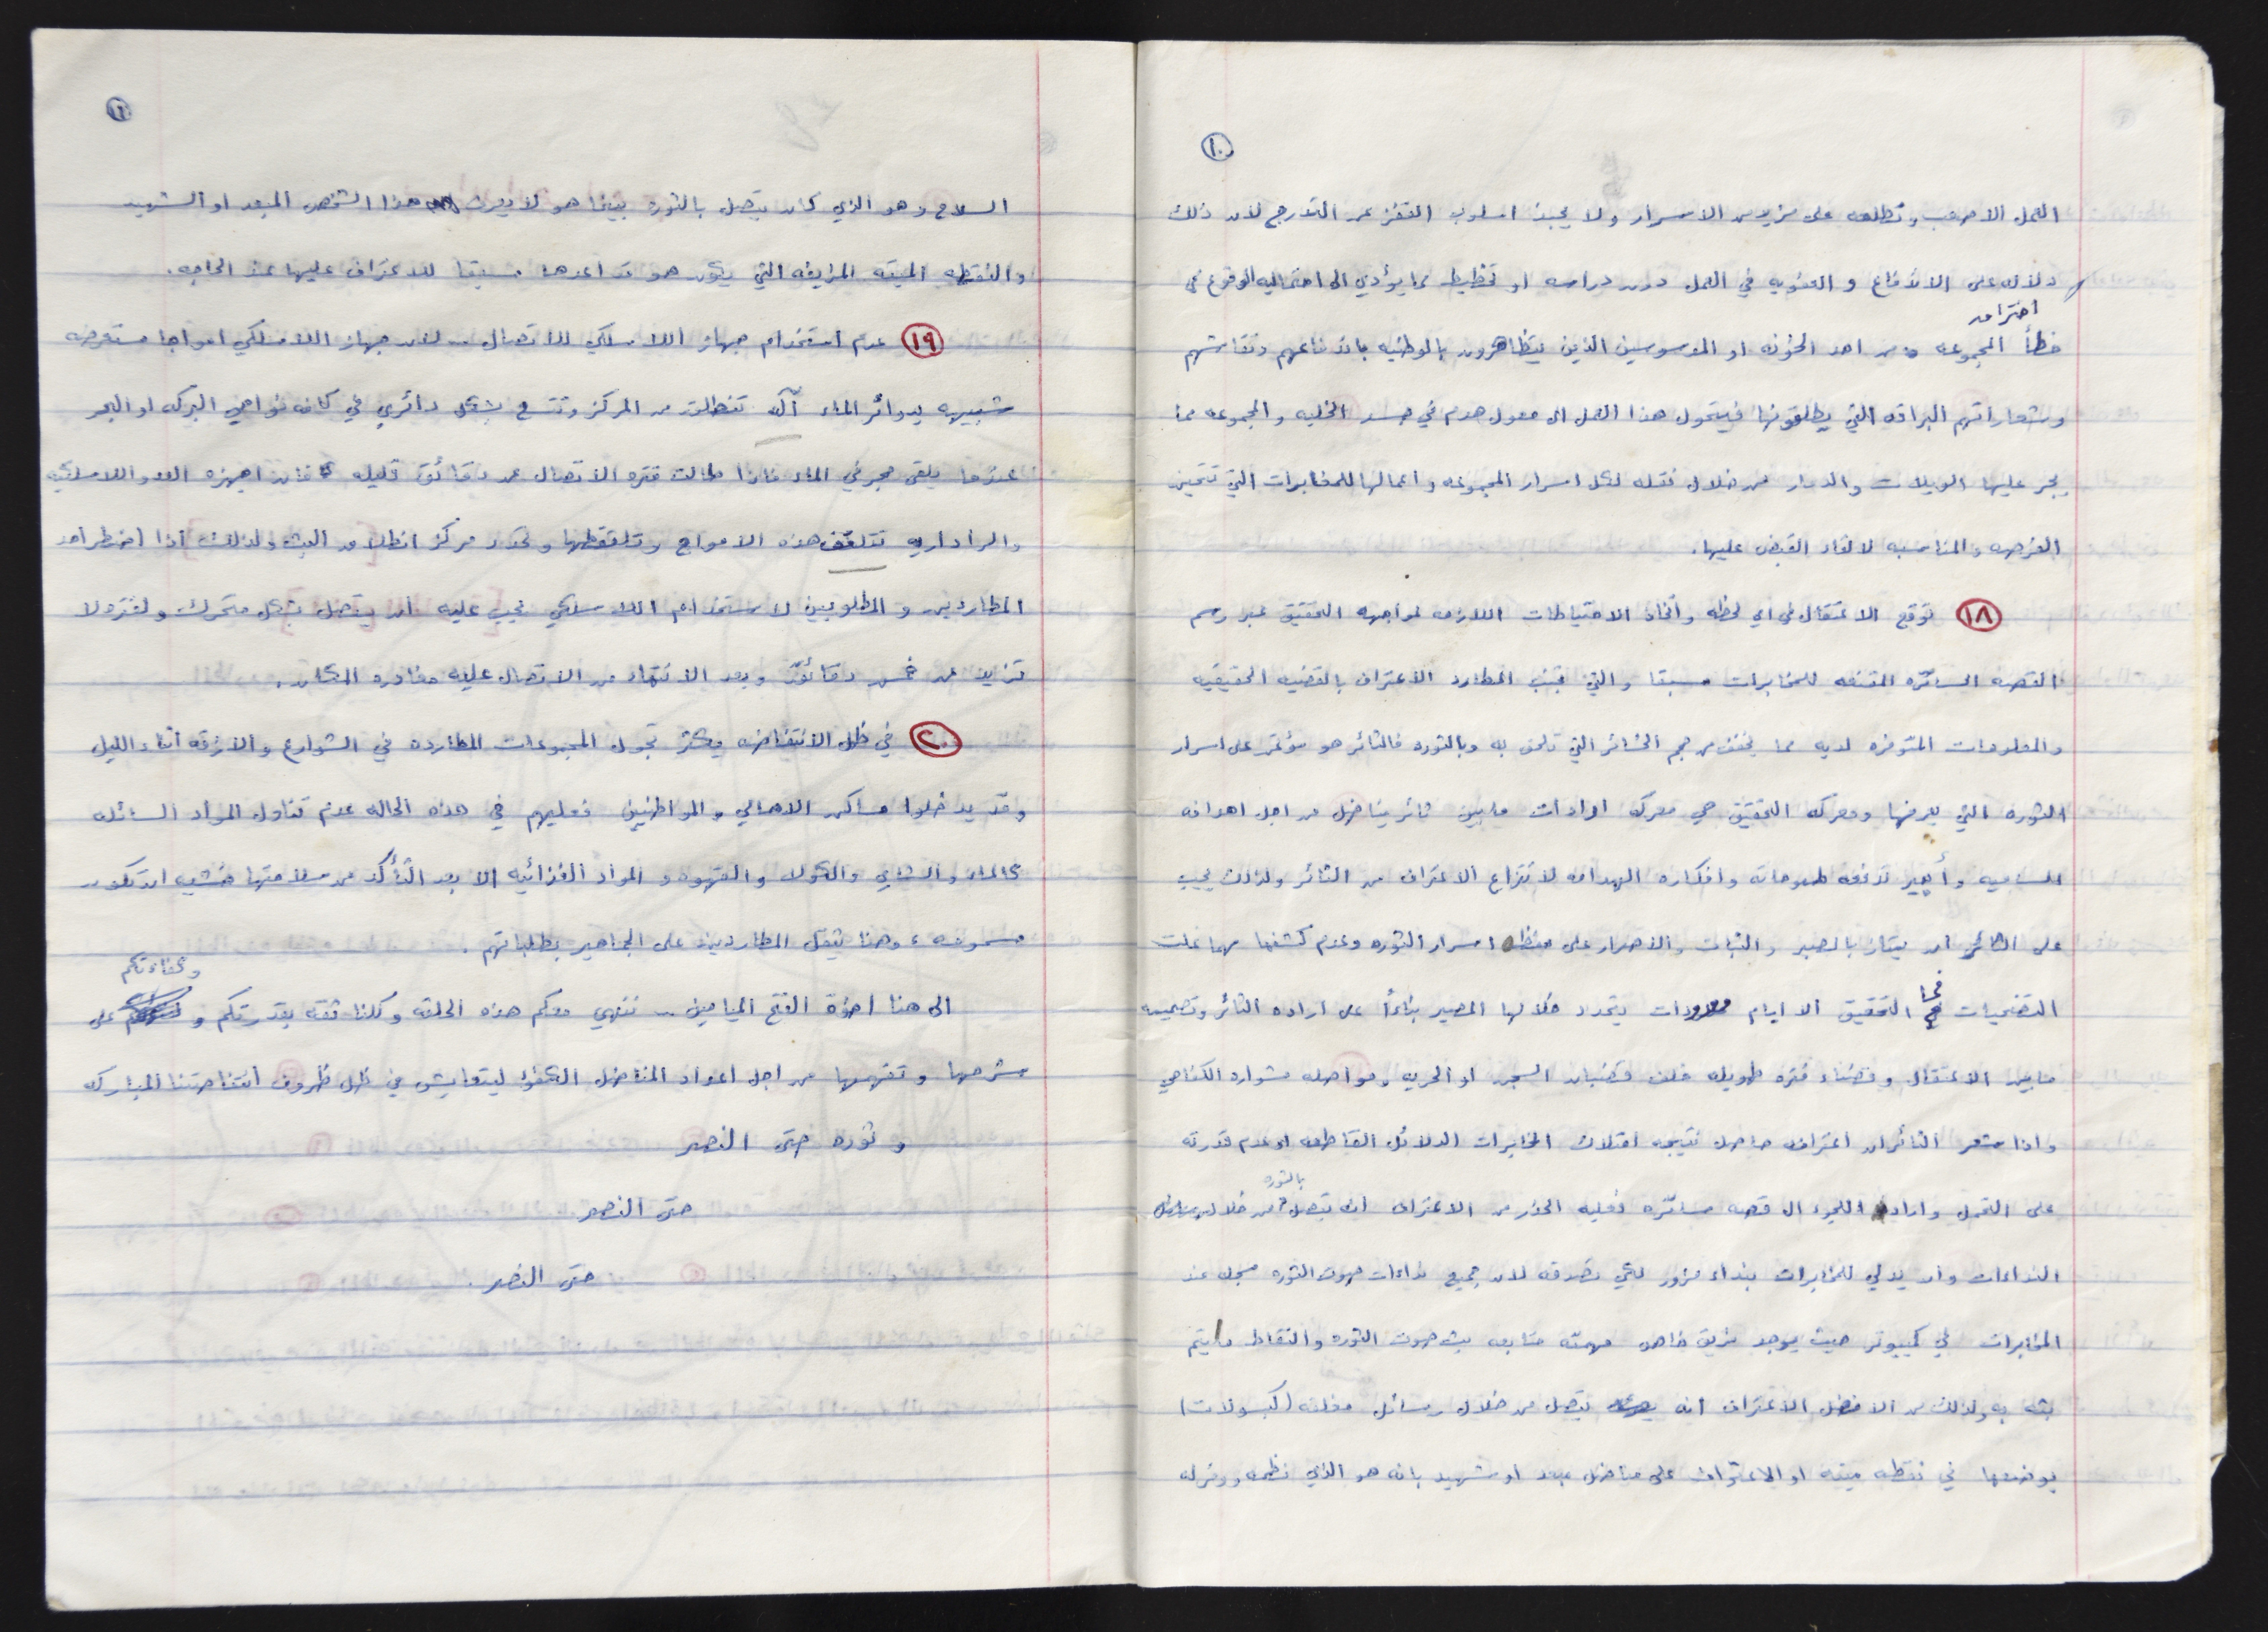 ١٠
العمل الاصعب وتطلعه على مزيد من الاسرار ولا يحبذ اسلوب القفز عن التدرج لان ذلك
دلاله على الاندفاع و العفويه في العمل دون دراسه او تخطيط مما يؤدي الى احتماليه الوقوع في
اختراق
خطأ المجموعه من احد الخونه او المدسوسين الذين يتظاهرون بالوطنيه باندفاعهم ونقاشهم
وشعاراتهم البراقه التي يطلقونها فيتحول هذا العمل الى معول هدم في جسد الخليه والمجموعه مما
يجر عليها الويلات والدمار من خلال نقله لكل اسرار المجموعه واعمالها للمخابرات التي تتحين
الفرصه والمناسبه لالقاء القبض عليها.
١٨ توقع الاعتقال في اي لحظه واتخاذ الاحتياطات اللازمه لمواجهه التحقيق عبر رسم
القصه الساتره المقنعه للمخابرات مسبقا والتي تجنب المطارد الاعتراف بالقضيه الحقيقيه
والمعلومات المتوفره لديه مما يخفف من حجم الخسائر التي تلحق به وبالثوره فالثائر هو مؤتمن على اسرار
الثوره التي يعرفها ومعركه التحقيق هي معركه ارادات ما بين ثائر يناضل من اجل اهدافه
الساميه وأجير تدفعه طموحاته وافكاره الهدامه لانتزاع الاعتراف من الثائر ولذلك يجب
على الثائر ان يمتاز بالصبر والثبات والاصرار على حفظ اسرار الثوره وعدم كشفها مهما غلت
التضحيات فما التحقيق الا ايام معدودات يتحدد خلالها المصير بناءً على اراده الثائر وتصميمه
ما بين الاعتقال وقضاء فتره طويله خلف قضبان السجن او الحريه ومواصله مشواره الكفاحي
واذا شعر الثائر ان اعترافه حاصل نتيجه امتلاك المخابرات الدلائل القاطعه او عدم قدرته
بالثوره
على التحمل واراد اللجوء الى قصه ساتره فعليه الحذر من الاعتراف انه يتصل من خلال
النداءات وان يدلي للمخابرات بنداء مزور لكي تصدقه لان جميع نداءات صوت الثوره مسجله عند
المخابرات في كمبيوتر حيث يوجد فريق خاص مهمته متابعه بث صوت الثوره والتقاط ما يتم
بثه به ولذلك من الافضل الاعتراف انه يتصل من خلال رسائل مغلفه (كبسولات)
يوضعها في نقطه ميته او الاعتراف على مناضل مبعد او شهيد بانه هو الذي نظمه ووفر له
١١
السلاح وهو الذي كان يتصل بالثوره بينما هو لا يعرف هذا الشخص المبعد او الشهيد
والنقطه الميته المزيفه التي يكون هو قد اعدها مسبقا للاعتراف عليها عند الحاجه.
١٩ عدم استخدام جهاز اللاسلكي للاتصال .. لان جهاز اللاسلكي امواجا مستعرضه
شبيهه بدوائر الماء تنطلق من المركز وتتسع بشكل دائري في كافه نواحي البركه او البحر
عندما يلقى حجر في الماء فاذا طالت فتره الاتصال عن دقائق قليله فان اجهزه العدو اللاسلكيه
والراداريه تتلقف هذه الامواج وتلتقطها وتحدد مركز انطلاق البث ولذلك اذا اضطر احد
المطاردين و المطلوبين لاستخدام اللاسلكي يجب عليه ان يتصل بشكل متحرك ولفتره لا
تزيد عن خمس دقائق وبعد الانتهاء من الاتصال عليه مغادره المكان.
٢٠ في ظل الانتفاضه يكثر تجول المجموعات المطارده في الشوارع والازقه اثناء الليل
وقد يدخلوا مساكن الاهالي والمواطنين فعليهم في هذه الحاله عدم تناول المواد السائله
كالماء والشاي والكولا والقهوه و المواد الغذائيه الا بعد التأكد من سلامتها خشيه ان تكون
مسمومه، وهنا يثقل المطاردين على الجماهير بطلباتهم.
وكفاءتكم
الى هنا اخوة الفتح الميامين .. ننهي معكم هذه الحلقه وكلنا ثقه بقدرتكم و على
شرحها وتفهمها من اجل اعداد المناضل الكفؤ ليتعايش في ظل ظروف انتفاضتنا المباركه
و ثوره حتى النصر
حتى النصر
حتى النصر.